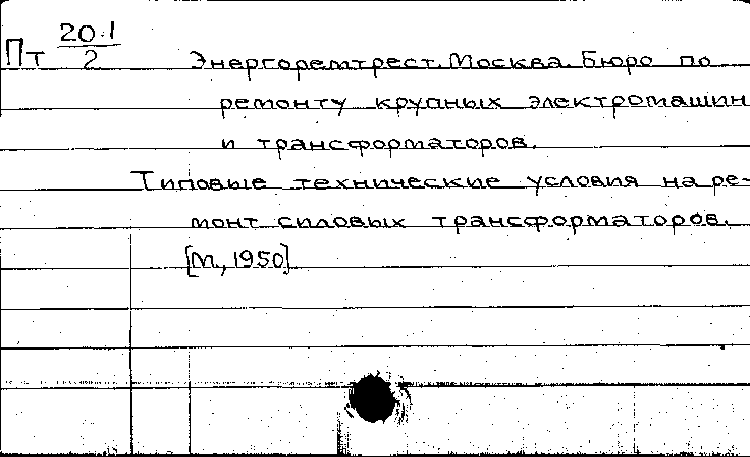 Пт 20.1/2
Энергоремтрест. Москва. Бюро по
ремонту крупных электромашин
и трансформаторов.
Типовые технические условия на ре-
монт силовых трансформаторов.
[М., 1950]